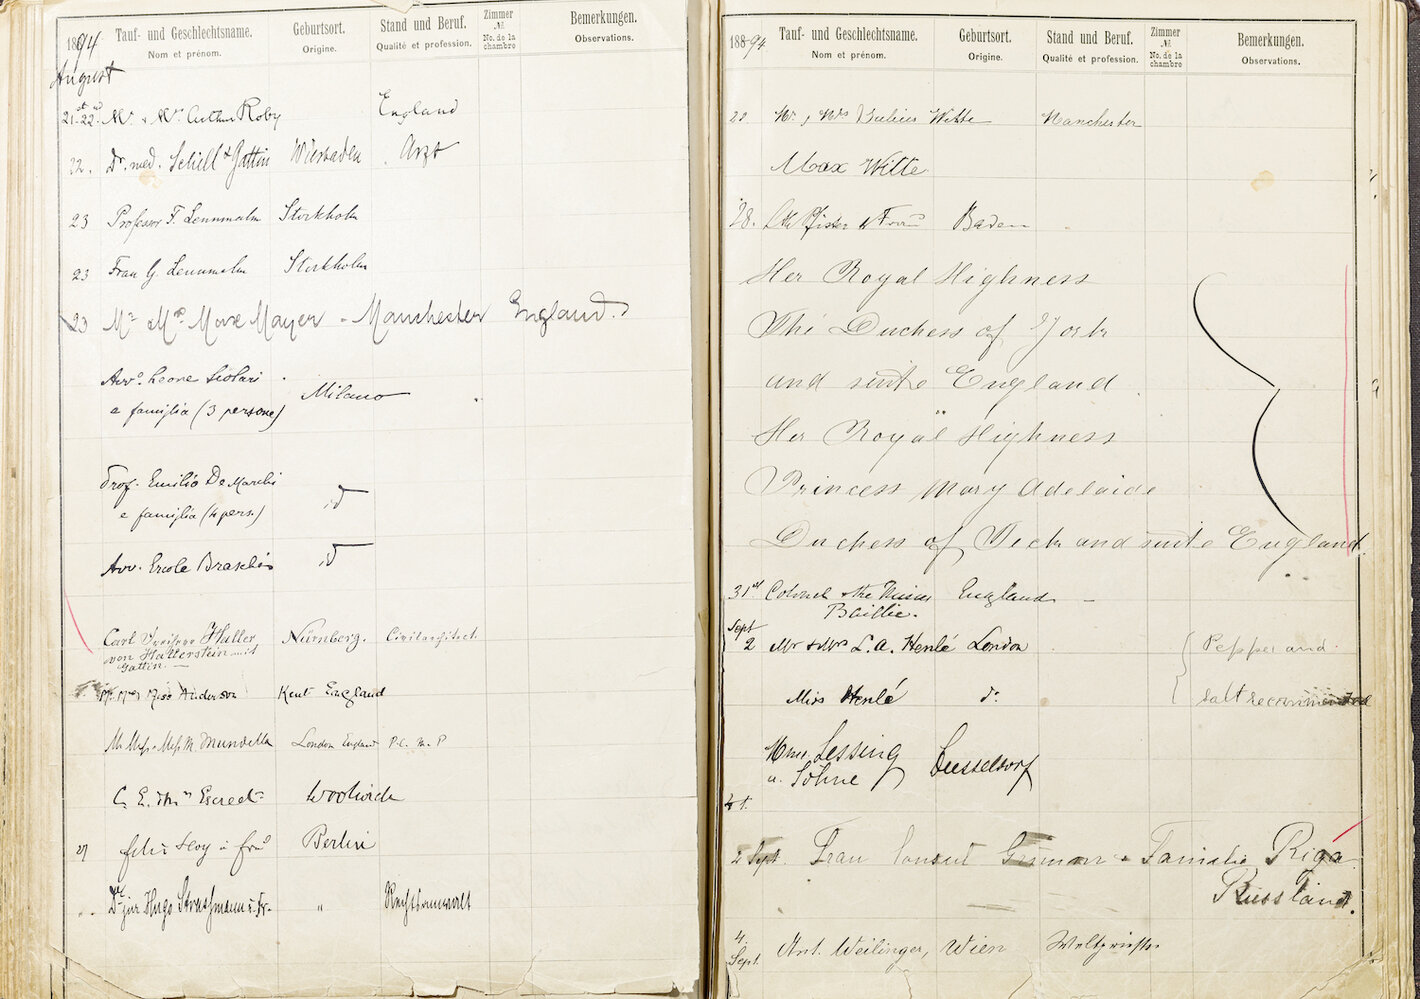 1894 Tauf- und Geschlechtsname. Geburtsort. Stand und Beruf. Zimmer № Bemerkungen.
Nom et prénom. Origine. Qualité et profession. No. de la chambre Observations.
August
21st 22nd Mr. & Mrs Arthur Roby England
22. Dr. med. Schill & Gattin Wiesbaden Arzt
23 Professor F. Lennmalm Stockholm
23 Frau G. Lennmalm Stockholm
23 Mr & Mrs Max Mayer - Manchester England
Avvo. Leone Scolari
e famiglia (3 persone) Milano
Prof. Emilio De Marchi
e famiglia (4 pers.) id
Avv. Ercole id
Carl Freiherr Haller Nürnberg. Civilarchitect.
von Hallerstein mit
Gattin. —
Mr. Mrs & Miss Anderson Kent England
Mr Miss. Miss M. Mundella London England P.C. M.P
C. E. Escreet Woolwich
27 Felix Hoy u Frau Berlin
Dr jur Hugo Strassmann u. Fr. " Rechtsanwalt
1894 Tauf- und Geschlechtsname. Geburtsort. Stand und Beruf. Zimmer № Bemerkungen.
Nom et prénom. Origine. Qualité et profession. No. de la chambre Observations.
Mr, Mrs Julius Witte Manchester
Max Witte
28. Pfister u Frau Baden
Her Royal Highness
The Duchess of York
and suite England
Her Royal Highness
Princess Mary Adelaide
Duchess of Teck and suite England.
31st Colonel & the Misses England —
Baillie.
Sept
2 Mr & Mrs L. A. Henlé London Pepper and
Miss Henlé do. salt recommended
Lessing Düsseldorf
u. Söhne
2 Sept. Frau Consul & Familie Riga
Russland.
4. Sept. Ant. Weilinger, Wien Weltpriester